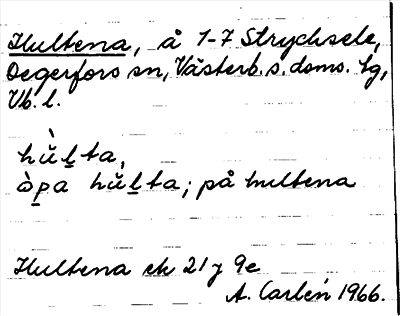 Hultena, å 1-7 Strycksele,
Degerfors sn, Västerb. s. doms. tg,
Vb. l.
hŭ̀l̲ta,
òp̲a hŭl̲ta; på hultena
Hultena ek 21 y 9e
A. Carlén 1966.